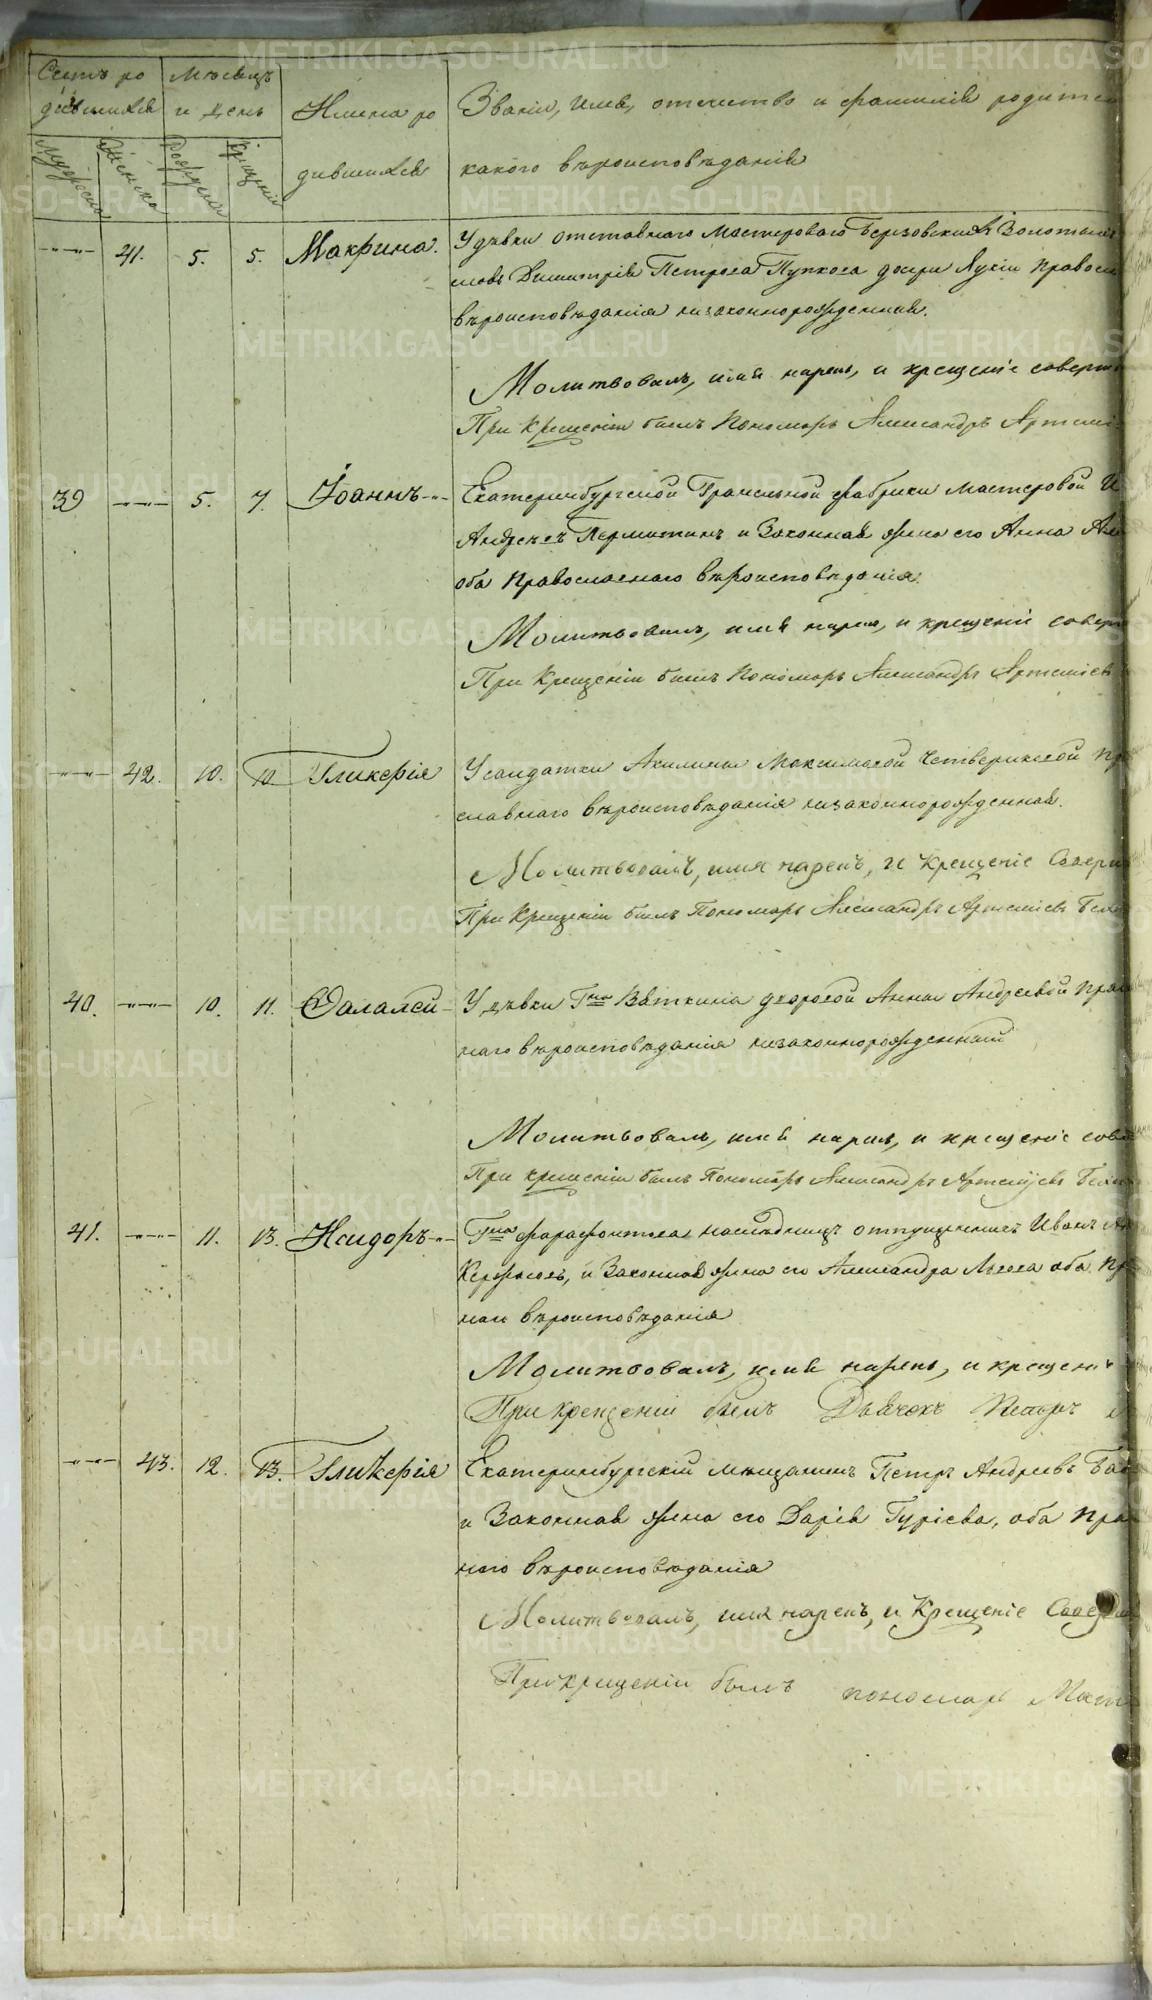 Счетъ ро
дившихся
Мѣсяцъ
и день
Имена ро
дившихся
Званіе, имя, отчество и фамилія родител
какого вѣроисповѣданія
Мужеска
Женска
Рожденія
Крещенія
41. 5. 5. Макрина.
У дѣвки отставнаго мастероваго Березовскихъ Золотыхъ
Димитрія Петрова Пупкова дочери Лукіи Правосл
вѣроисповѣданія незаконнорожденная.
Молитвовалъ, имя нарекъ, и крещеніе соверш
При крещеніи былъ Пономарь Александръ Артемі
39 5. 7. Іоаннъ
Екатеринбургской Гранильной фабрики мастеровой И
Андреевъ Пермитинъ и Законная жена его Анна Ал
оба Православнаго вѣроисповѣданія.
Молитвовалъ, имя нарекъ, и крещеніе соверш
При Крещеніи былъ Пономарь Александръ Артеміевъ
42. 10. 10 Гликерія
У солдатки Акилины Максимовой Четвериковой Пр
славнаго вѣроисповѣданія незаконнорожденная.
Молитвовалъ, имя нарекъ, и Крещеніе Соверш
При Крещеніи былъ Пономарь Александръ Артеміевъ
40. 10. 11. Фалалей
У дѣвки Гна Вяткина дворовой Анны Андреевой Прав
наго вѣроисповѣданія незаконнорожденный
Молитвовалъ, имя нарекъ, и крещеніе сов
При крещеніи былъ Пономарь Александръ Артеміевъ
41. 11. 13. Исидоръ
наслѣдницъ отпущенникъ Иванъ
и Законная жена его Александра Львова оба Пр
наго вѣроисповѣданія
Молитвовалъ, имя нарекъ, и крещеніе
При крещеніи былъ Дьячекъ Петръ
43. 12. 13. Гликерія
Екатеринбургскій мѣщанинъ Петръ Андреевъ
и Законная жена его Дарія Гуріева, оба Пра
наго вѣроисповѣданія
Молитвовалъ, имя нарекъ, и Крещеніе Соверш
При крещеніи былъ пономарь
METRIKI.GASO-URAL.RU